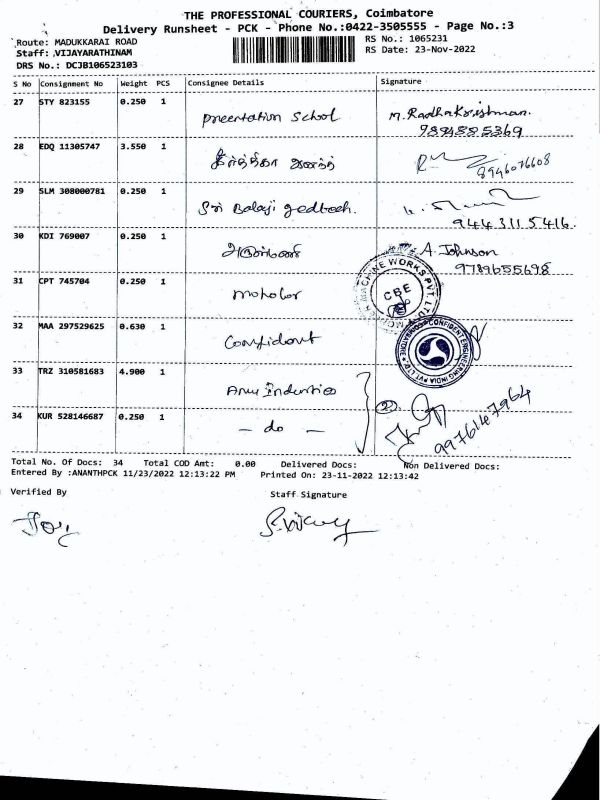 THE PROFESSIONAL COURIERS, Coimbatore
Delivery Runsheet - PCK - Phone No.:0422-3505555 - Page No.:3
Route: MADUKKARAI ROAD
RS No.: 1065231
Staff: VIJAYARATHINAM
RS Date: 23-Nov-2022
DRS No.: DCJB106523103
S No Consignment No Weight PCS Consignee Details Signature
27 STY 823155 0.250 1 preentation School M. RadhaKrishnan.
9894885369
28 EDQ 11305747 3.550 1 கீர்த்திகா ஆனந்த்
8946076608
29 SLM 308000781 0.250 1 Sri Balaji gedtech.
9443115416.
30 KDI 769007 0.250 1 A. Johnson
9789655698
31 CPT 745704 0.250 1
MACHINE WORKS PVT. LTD.
CBE
32 MAA 297529625 0.630 1 Confidant
CONFIDENT ENGINEERING INDIA PVT. LTD. COIMBATORE
33 TRZ 310581683 4.900 1
34 KUR 528146687 0.250 1 - do -
9976147964
Total No. Of Docs: 34 Total COD Amt: 0.00 Delivered Docs: Non Delivered Docs:
Entered By :ANANTHPCK 11/23/2022 12:13:22 PM Printed On: 23-11-2022 12:13:42
Verified By Staff Signature